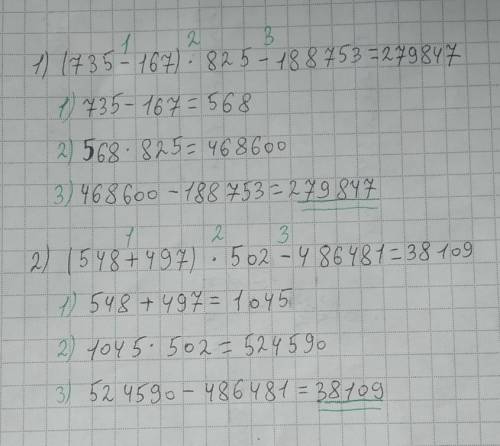 1 2 3
1) (735-167)·825-188753=279847
1) 735-167=568
2) 568·825=468600
3) 468600-188753=279847
1 2 3
2) (548+497)·502-486481=38109
1) 548+497=1045
2) 1045·502=524590
3) 524590-486481=38109